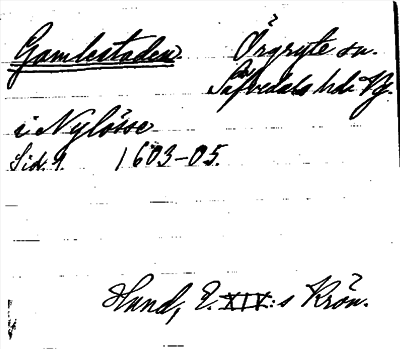 Gamlestaden Örgryte sn.
Säfvedals hde Vg.
i Nylöse
Sid. 9. 1603-05.
Hund, E. XIV:s Krön.